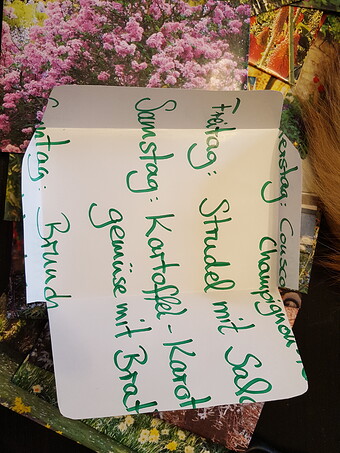 erstag: Cousc
Champignon
Freitag: Strudel mit Sala
Samstag: Kartoffel-Karot
gemüse mit Brat
ntag: Brunch